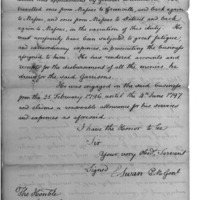 travelled once from Mifsin to Greenville, and back again
to Mifsin, and once from Mifsin to Detroit and back
again to Mifsin, in the execution of this duty. He
must necessarily have been subjected to great fatigue,
and extraordinary expences, in performing the business
assigned to him. He has rendered accounts and
for the disbursement of all the monies he
drew for the said Garrisons.
He was engaged in the said business
from the 21 February 1796 until the 4th June 1797
and claims a reasonable allowance for his services
and expences as aforesaid
I have the Honor to be
Sir
Your very Obdt. Servant
Signed C Swan P.M. Genl
The Honble